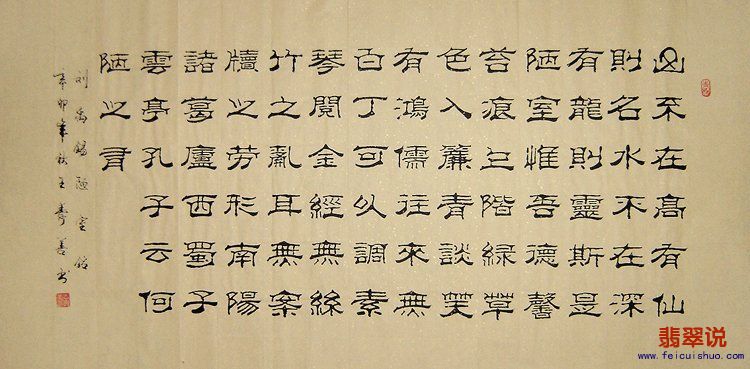 山不在高有仙
則名水不在深
有龍則靈斯是
陋室惟吾德馨
苔痕上階綠草
色入簾青談笑
有鴻儒往來無
白丁可以調素
琴閱金經無絲
竹之亂耳無案
牘之勞形南陽
諸葛廬西蜀子
雲亭孔子云何
陋之有
刘禹錫陋室銘
辛卯年秋王壽善书
翡翠说
www.feicuishuo.com